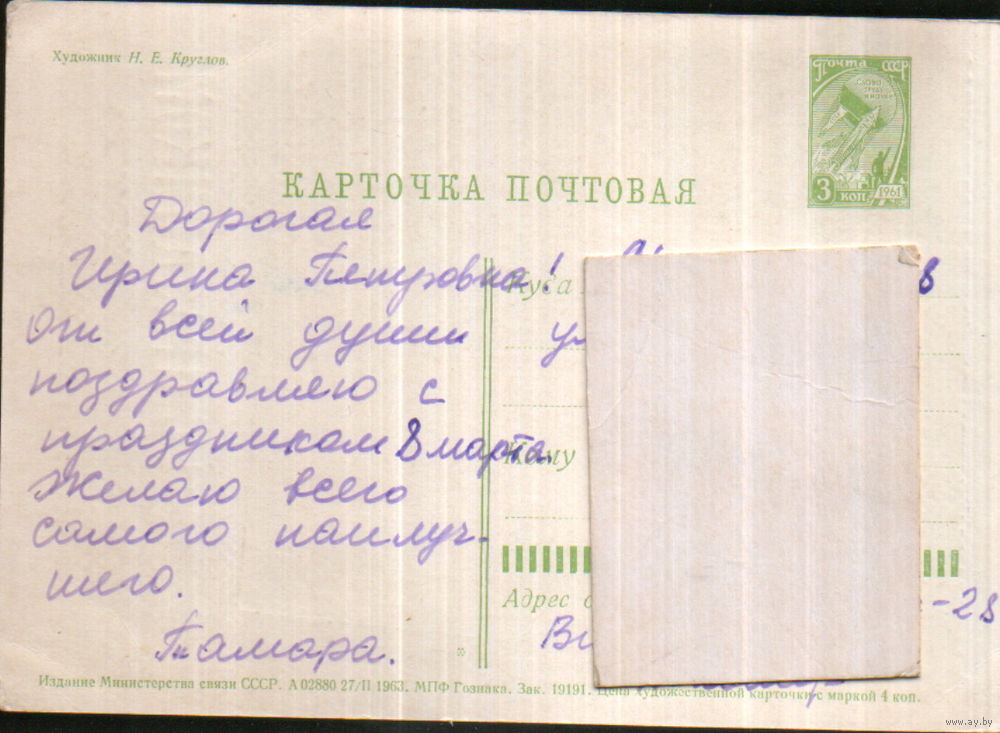 Художник Н. Е. Круглов.
ПОЧТА СССР
СЛАВА
ТРУДУ
И НАУКЕ
3 КОП
1961
КАРТОЧКА ПОЧТОВАЯ
Дорогая
Ирина Петровна!
От всей души
поздравляю с
праздником 8 марта.
Желаю всего
самого наилуч-
шего.
Тамара.
Куда
8
ул
Кому
Адрес о
-28
Ви
Издание Министерства связи СССР. А 02880 27/II 1963. МПФ Гознака. Зак. 19191. Цена художественной карточки с маркой 4 коп.
www.ay.by